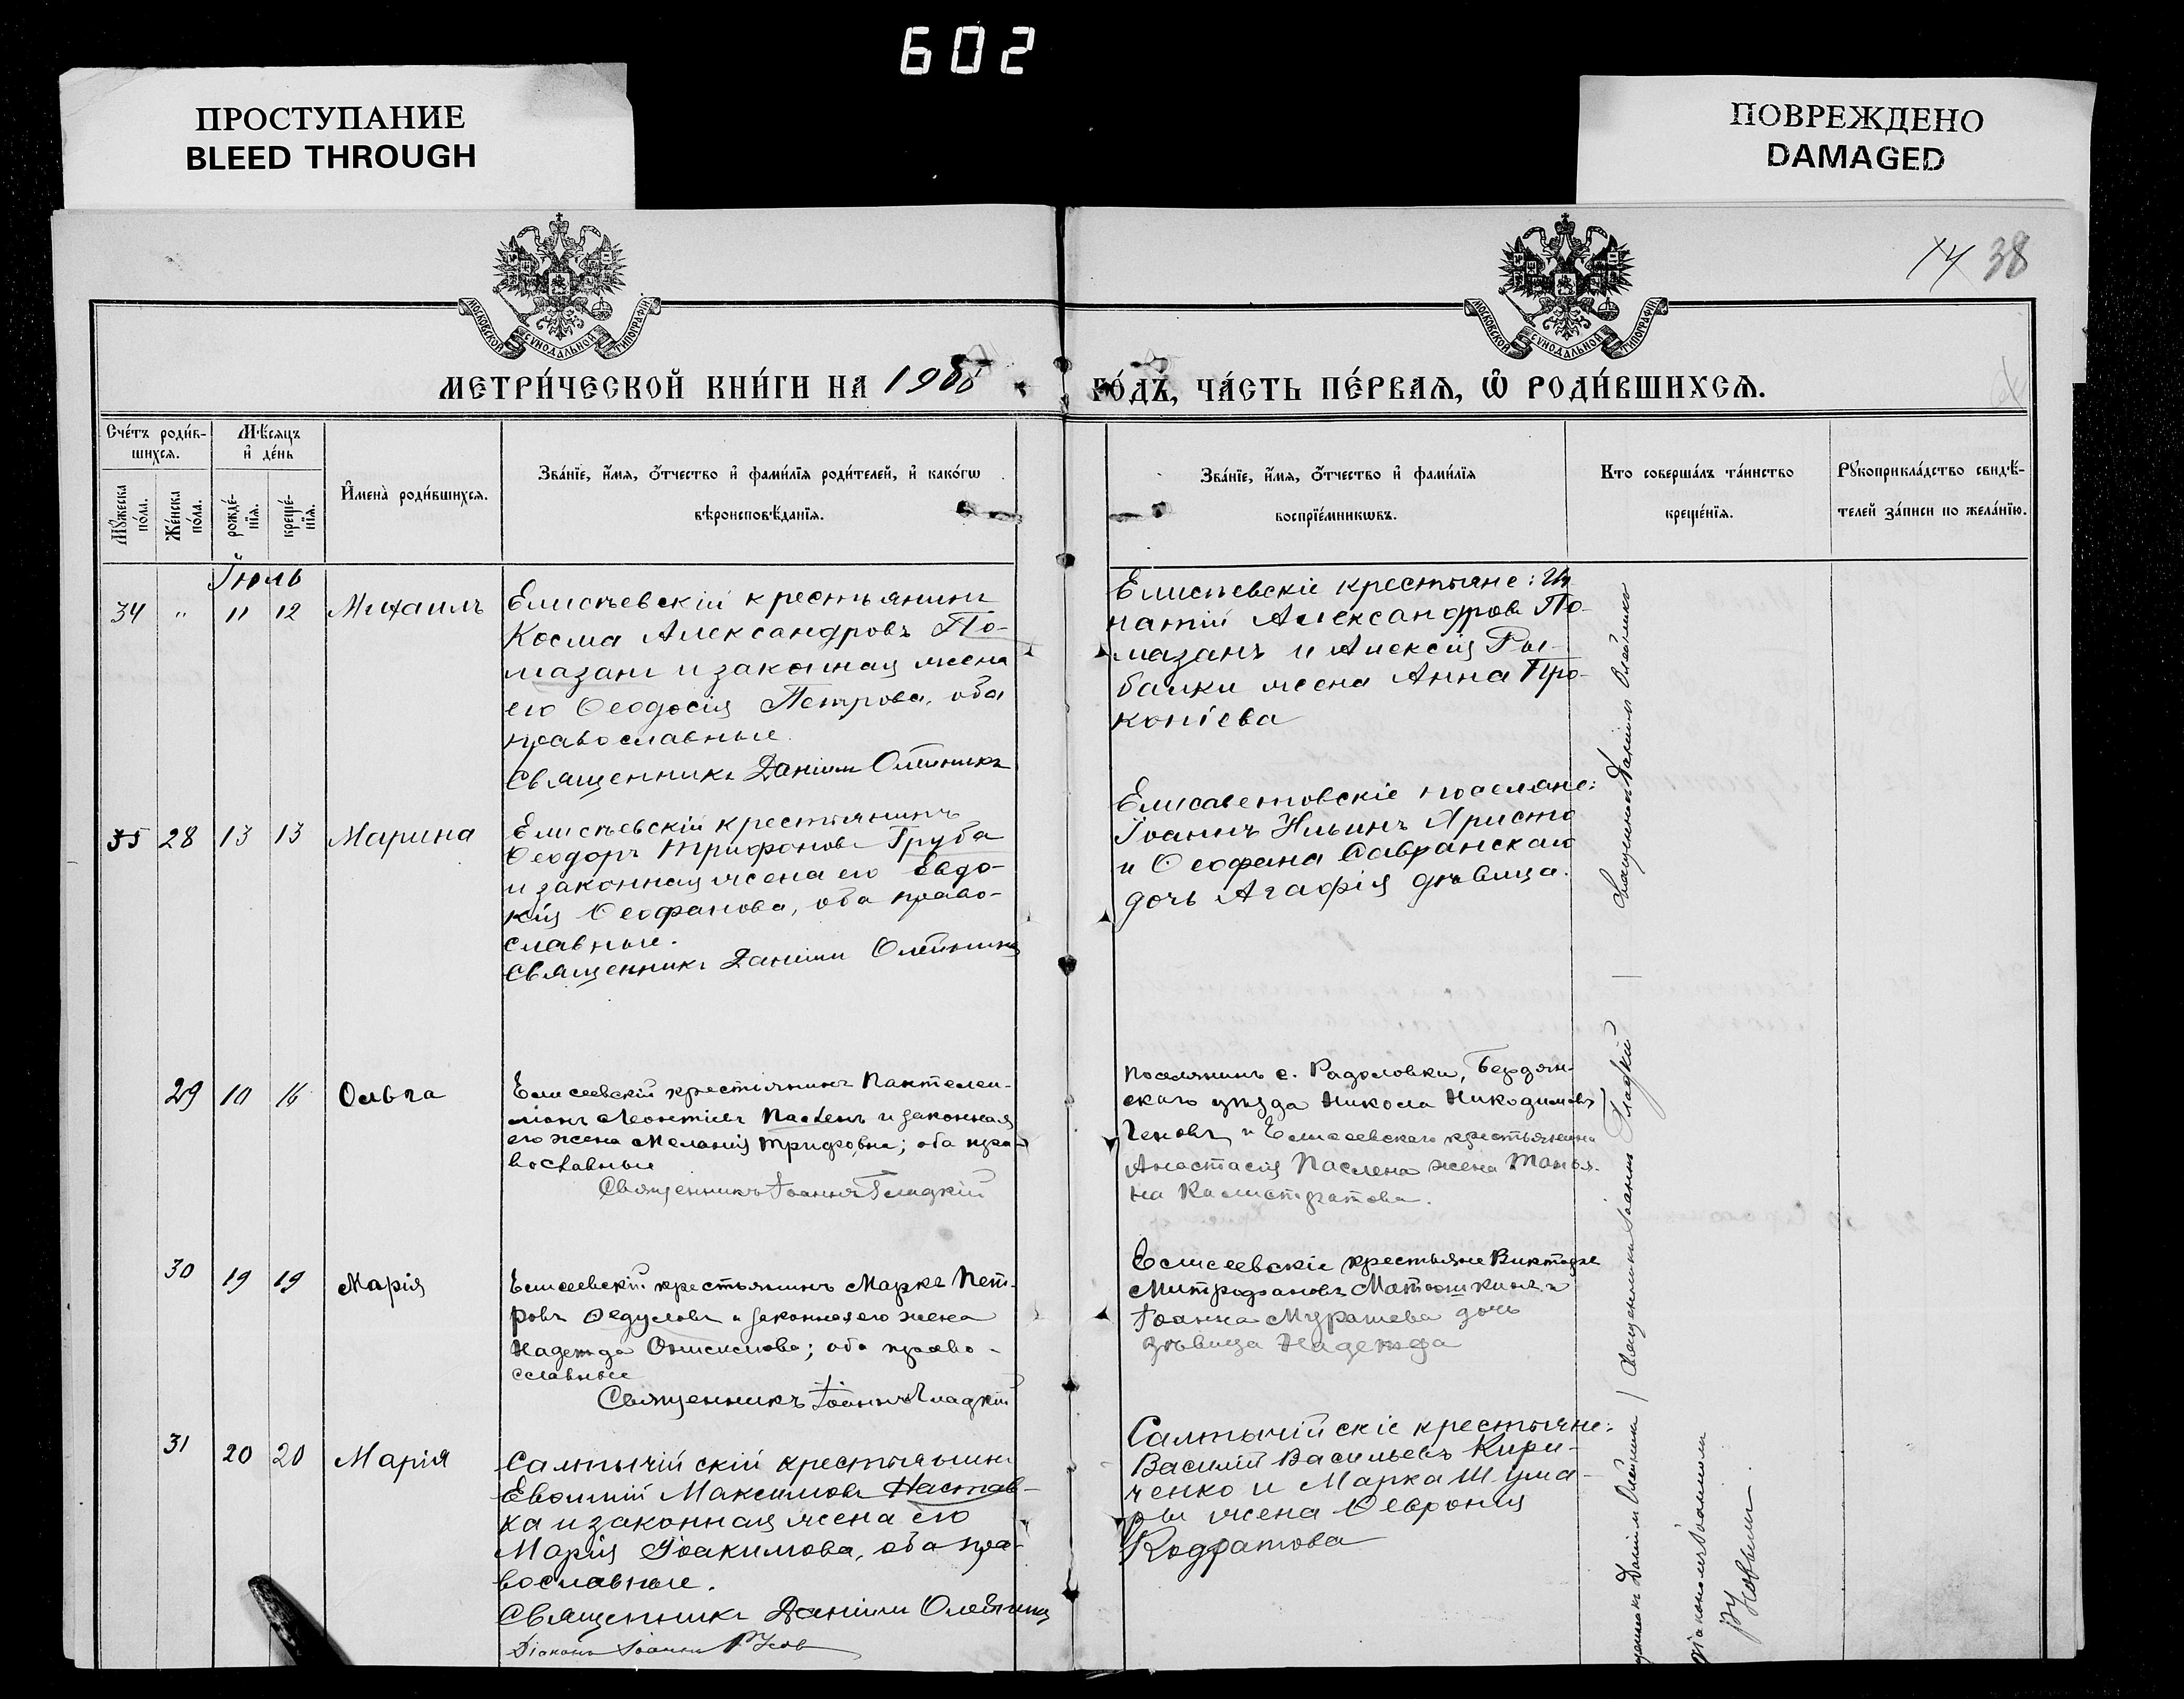 602
ПРОСТУПАНИЕ
BLEED THROUGH
ПОВРЕЖДЕНО
DAMAGED
38
МОСКОВСКОЙ СУНОДАЛЬНОЙ ТИПОГРАФІИ
МОСКОВСКОЙ СУНОДАЛЬНОЙ ТИПОГРАФІИ
МЕТРИ́ЧЕСКОЙ КНИ́ГИ НА 190
ГО́ДЪ, ЧА́СТЬ ПЕ́РВАѦ, Ѿ РОДИ́ВШИХСѦ.
Сче́тъ роди́в-
шихсѧ.
Мѣ́сѧцъ
и҆ де́нь
Мꙋ́жеска по́ла.
Же́нска по́ла.
рожде́-нїѧ.
креще́-нїѧ.
И҆мена̀ роди́вшихсѧ.
Зва́нїе, и҆́мѧ, ѻ҆́тчество и҆ фами́лїѧ роди́телей, и҆ како́гѡ
вѣроисповѣ́данїѧ.
Зва́нїе, и҆́мѧ, ѻ҆́тчество и҆ фами́лїѧ
воспрїе́мникѡвъ.
Кто соверша́лъ та́инство
креще́нїѧ.
Рꙋкоприкла́дство свидѣ́-
телей за́писи по жела́нїю.
Іюль
34 " 11 12 Михаилъ
Елисѣевскій крестьянинъ
Косма Александровъ По-
мазанъ и законная жена
его Ѳеодосія Петрова, оба
православные.
Священникъ Даніилъ Олейникъ
Елисѣевскіе крестьяне: Иг
натій Александровъ По-
мазанъ и Алексія Ры-
балки жена Анна Про-
копіева
35 28 13 13 Марина
Елисѣевскій крестьянинъ
Ѳеодоръ Трифоновъ Груба
и законная жена его Евдо-
кія Ѳеофанова, оба право-
славные.
Священникъ Даніилъ Олейникъ
Елисаветовскіе поселяне:
Іоаннъ Ильинъ Христо
и Ѳеофана Савранскаго
дочь Агафія дѣвица.
29 10 16 Ольга
Елисеевскій крестьянинъ Пантелеи-
монъ Леонтіевъ Пасленъ и законная
его жена Меланія Трифовна; оба пра-
вославные
Священникъ Іоаннъ Гладкій
Поселянинъ с. Радоловки, Бердян-
скаго уѣзда Никола Никодимовъ
Геновъ и Елисеевскаго крестьянина
Анастасія Паслена жена Татья-
на Калистратова.
30 19 19 Марія
Елисеевскій крестьянинъ Марка Пет-
ровъ Ѳедуловъ и законная его жена
Надежда Онисимова; оба право-
славные
Священникъ Іоаннъ Гладкій
Елисеевскіе крестьяне Викторъ
Митрофановъ Матюшкинъ и
Іоанна Мурашева дочь
дѣвица Надежда
31 20 20 Марія
Салтычійскій крестьянинъ
Евѳимій Максимовъ Настав-
ка и законная жена его
Марія Іоакимова, оба пра-
вославные.
Священникъ Даніилъ Олейникъ
Діаконъ Іоаннъ
Салтычійскіе крестьяне:
Василій Васильевъ Кири-
ченко и Марка Шума-
ры жена Ѳеврония
Кодратова
Священникъ Даніилъ Олейникъ
Священникъ Іоаннъ Гладкій
Даніилъ Олейникъ
діакономъ Іоанномъ